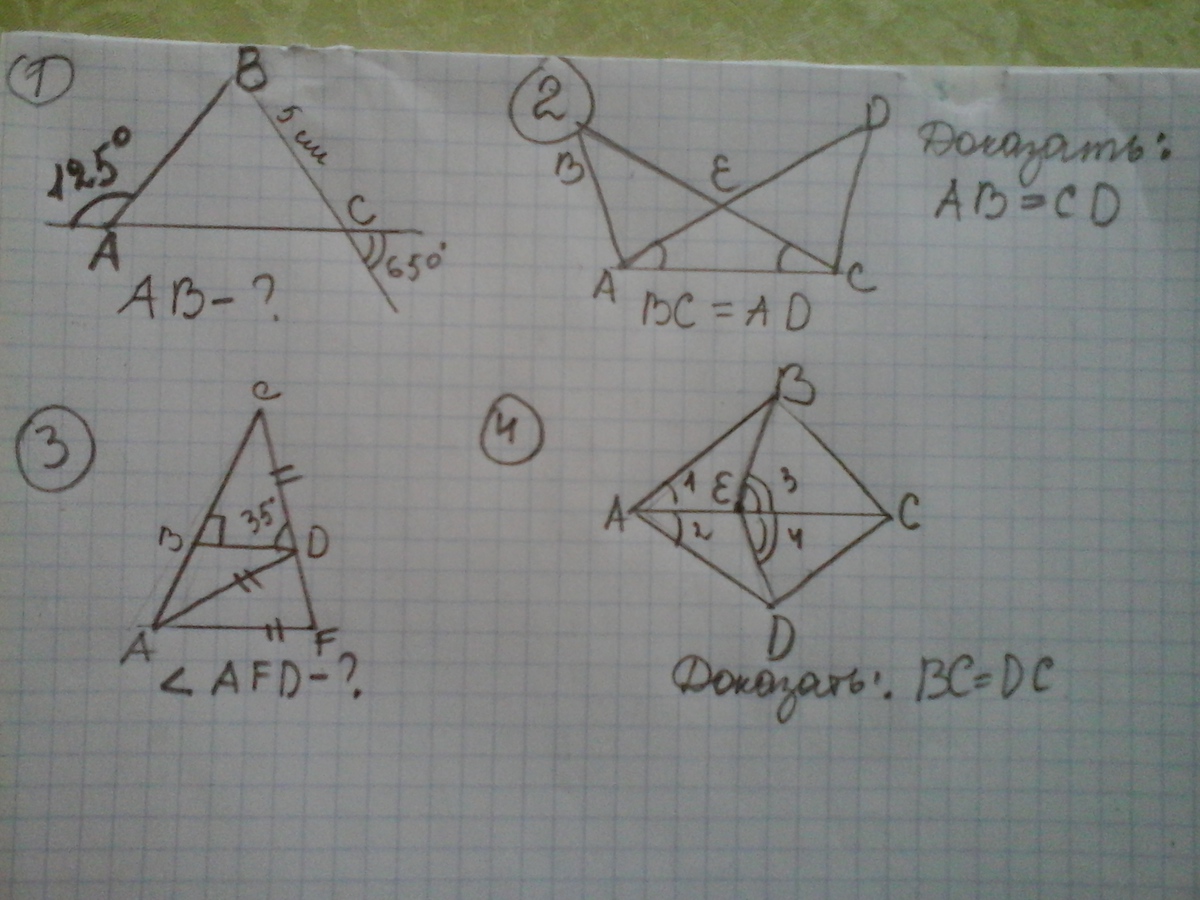 1
B
5 см
125°
C
A
650°
AB - ?
2
B
E
D
Доказать:
AB = CD
A
C
BC = AD
3
C
35
B
D
A
F
< AFD - ?
4
B
1
E
3
A
C
2
4
D
Доказать: BC = DC